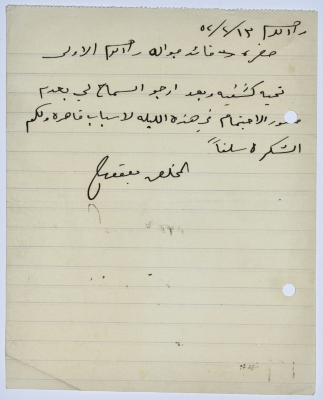 رام الله ١٣/٤/٥٢
حضرة قائد جوالة رام الله الاولى
تحية كشفيه وبعد ارجو السماح لي بعدم
حضور الاجتماع في هذه الليله لاسباب قاهرة ولكم
الشكر سلفاً
المخلص